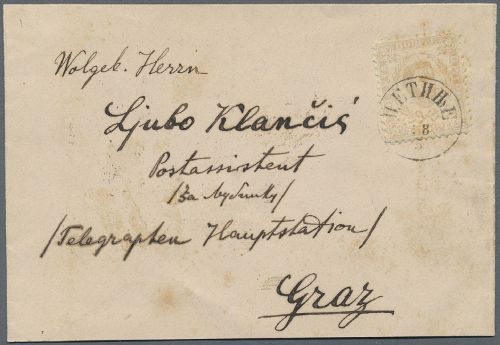 Wolgeb. Herrn
Ljubo Klančić
Postassistent
/за
/Telegraphen Hauptstation/
Graz
ЦЕТИЊЕ
8